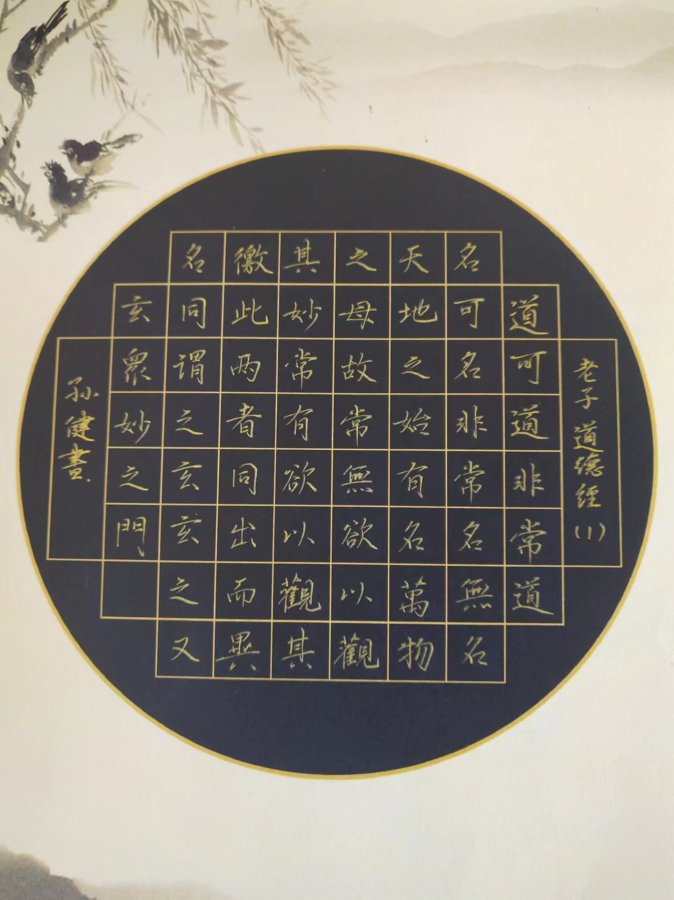 老子道德經(1)
道可道非常道
名可名非常名無名
天地之始有名萬物
之母故常無欲以觀
其妙常有欲以觀其
徼此两者同出而異
名同謂之玄玄之又
玄眾妙之門
孙健書